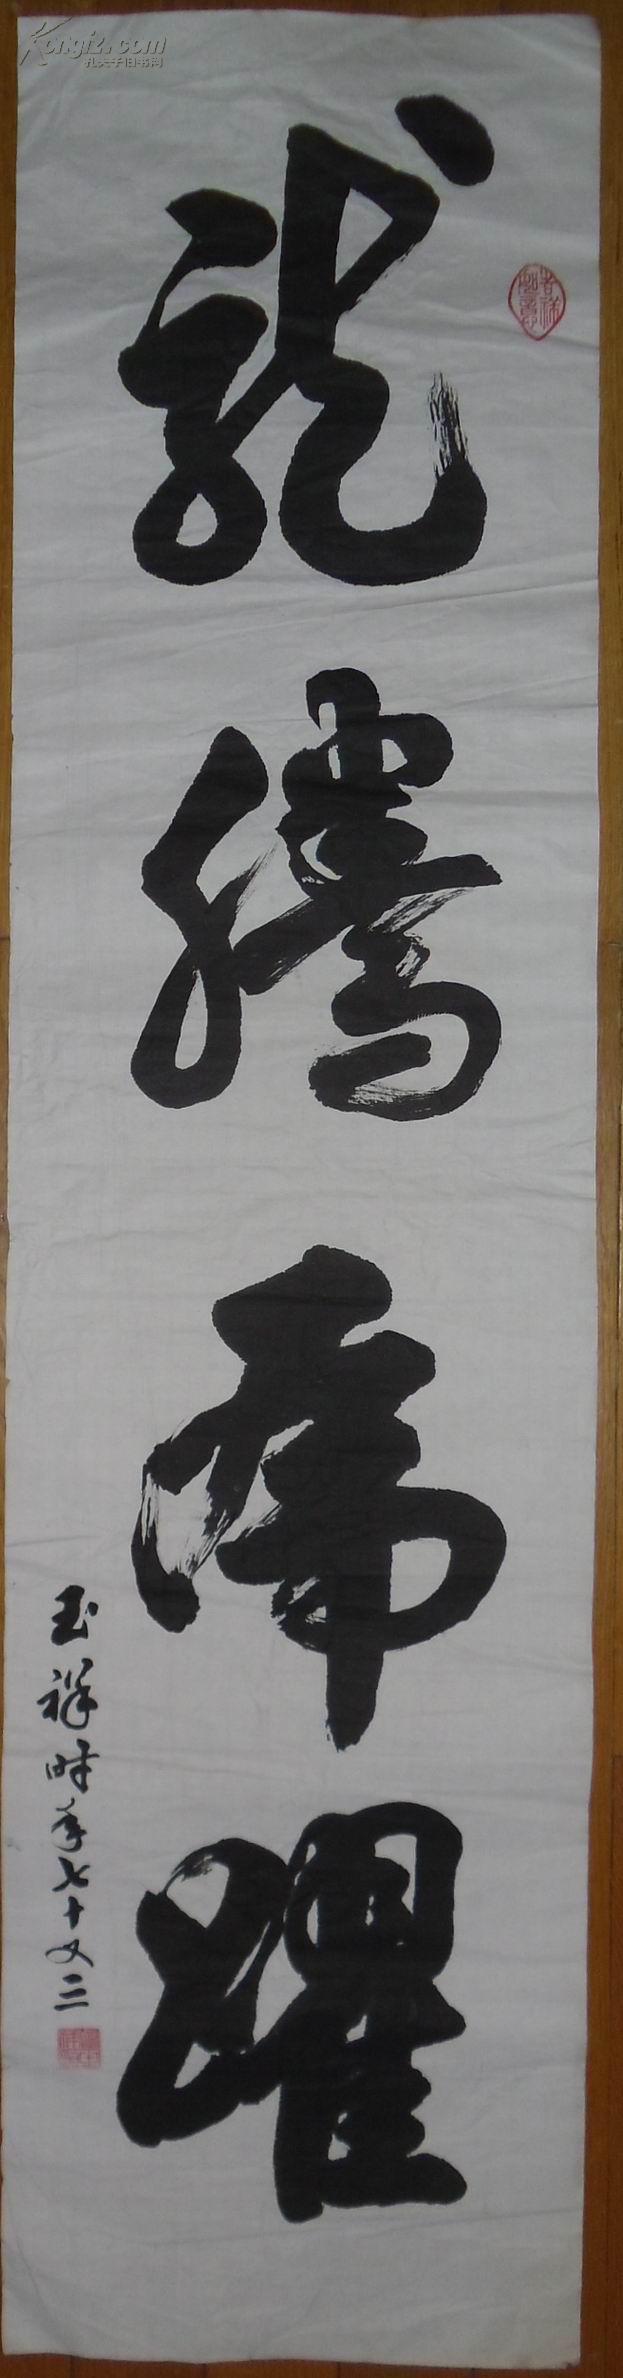 龍騰虎躍
玉祥时年七十又二
Kongfz.com
孔夫子旧书网